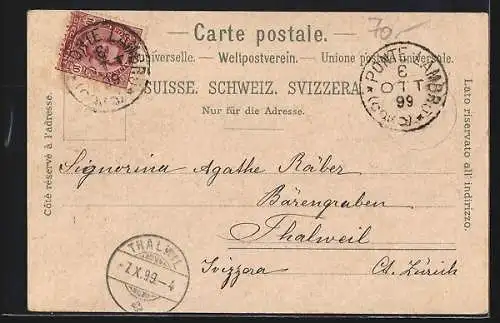 70.-
Carte postale.
universelle. — Weltpostverein. — Unione postale universale.
SUISSE. SCHWEIZ. SVIZZERA.
Nur für die Adresse.
Côté réservé à l'adresse.
Lato riservato all'indirizzo.
PONTE LAMBRO
3
OTT
99
(COMO)
PONTE LAMBRO
3
99
(COMO)
Signorina Agathe Räber
Bärengraben
Thalweil
Svizzera Ct. Zürich
THALWIL
-7.X.99.-4